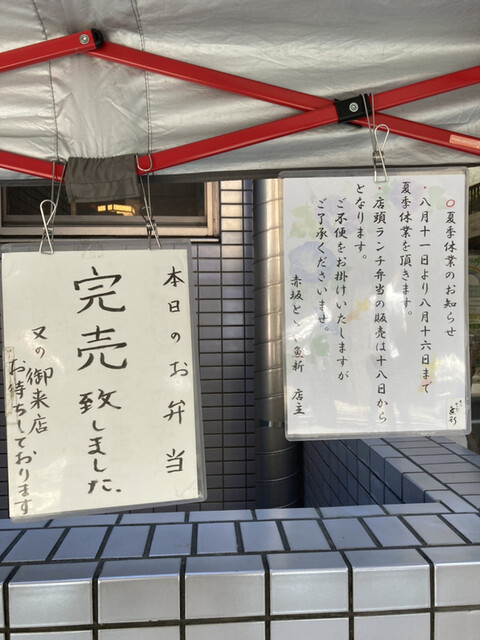 ○夏季休業のお知らせ
・八月十一日より八月十六日まで
夏季休業を頂きます。
・店頭ランチ弁当の販売は十八日から
となります。
ご不便をお掛けいたしますが
ご了承くださいませ。
赤坂 魚新 店主
本日のお弁当
完売致しました、
又の御来店
お待ちしております